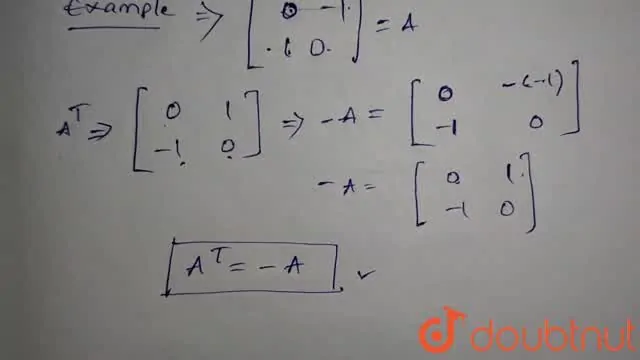 Example ⇒ [ 0 -1
1 0 ] = A
A^T ⇒ [ 0 1
-1 0 ] ⇒ -A = [ 0 -(-1)
-1 0 ]
-A = [ 0 1
-1 0 ]
A^T = -A ✓
doubtnut